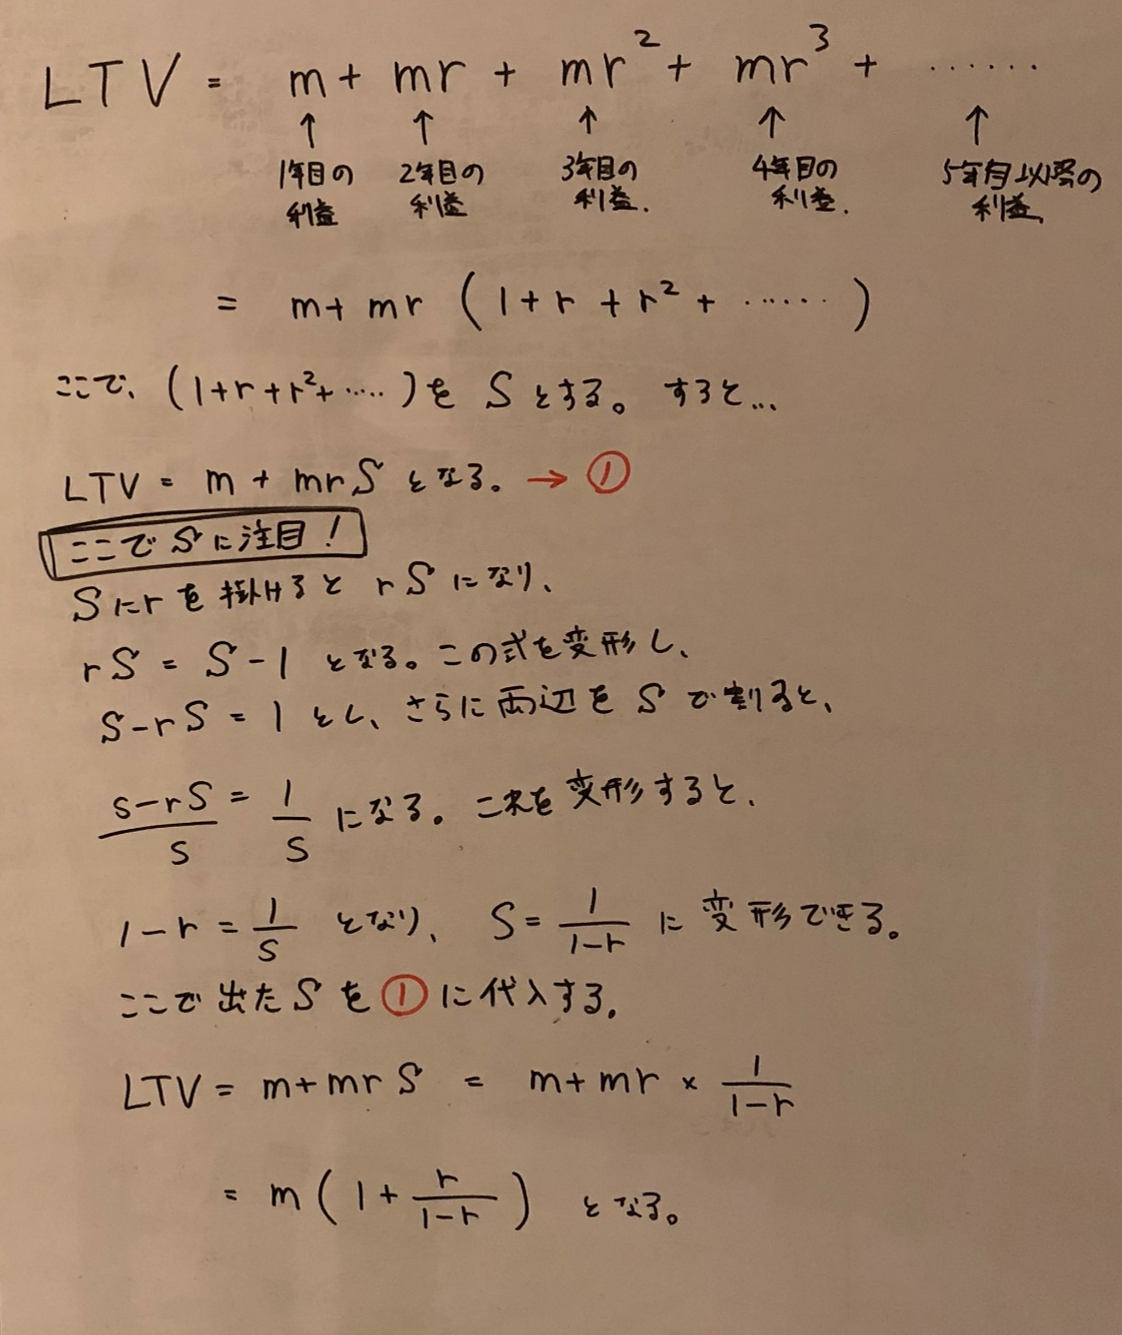 LTV = m + mr + mr² + mr³ + ......
↑ ↑ ↑ ↑ ↑
1年目の 2年目の 3年目の 4年目の 5年目以降の
利益 利益 利益. 利益. 利益.
= m + mr (1 + r + r² + ......)
ここで、(1+r+r²+.....)を S とする。すると...
LTV = m + mrS となる。→ ①
ここで S に注目!
S に r を掛けると rS になり、
rS = S - 1 となる。この式を変形し、
S - rS = 1 とし、さらに両辺を S で割ると、
(S - rS)/S = 1/S になる。これを変形すると、
1 - r = 1/S となり、 S = 1/(1-r) に変形できる。
ここで出た S を ① に代入する。
LTV = m + mr S = m + mr × 1/(1-r)
= m (1 + r/(1-r)) となる。